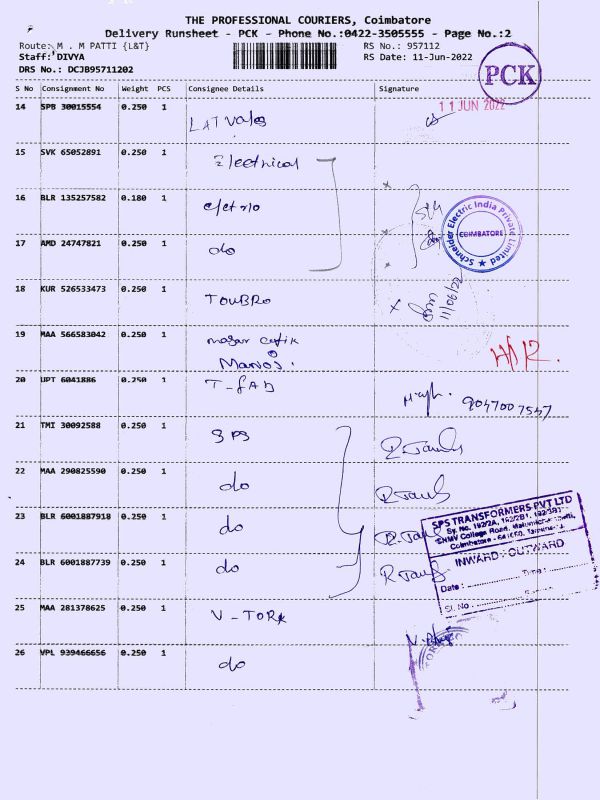 THE PROFESSIONAL COURIERS, Coimbatore
Delivery Runsheet - PCK - Phone No.:0422-3505555 - Page No.:2
Route: M . M PATTI {L&T} RS No.: 957112
Staff: DIVYA RS Date: 11-Jun-2022
DRS No.: DCJB95711202
PCK
S No Consignment No Weight PCS Consignee Details Signature
11 JUN 2022
14 SPB 30015554 0.250 1
L&T Valves
15 SVK 65052891 0.250 1 Electrical
16 BLR 135257582 0.180 1
17 AMD 24747821 0.250 1 do
Schneider Electric India Private Limited
COIMBATORE
18 KUR 526533473 0.250 1 TOUBRO
11/06/22
19 MAA 566583042 0.250 1
Manoj.
20 UPT 6041886 0.250 1 T-FAB
9047007547
21 TMI 30092588 0.250 1 SPS
22 MAA 290825590 0.250 1 do
23 BLR 6001887918 0.250 1 do
24 BLR 6001887739 0.250 1 do
SPS TRANSFORMERS PVT LTD
Sy. No. 192/2A, 192/2B1, 192/3B1
SNMV College Road,
INWARD / OUTWARD
Date : Time :
Sl. No :
25 MAA 281378625 0.250 1 V-TORK
26 VPL 939466656 0.250 1 do